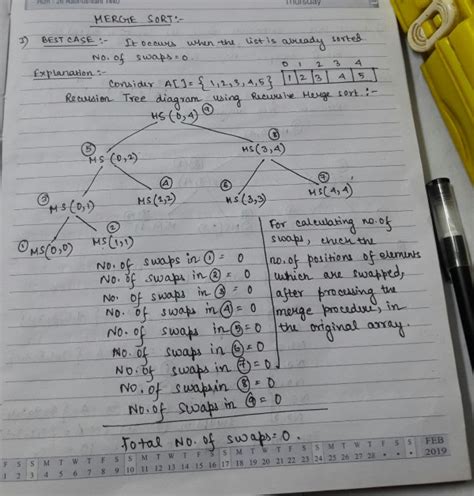 Thursday
MERGE SORT:-
1) BEST CASE :- It occurs when the list is already sorted
No. of swaps=0.
Explanation:-
0 1 2 3 4
Consider A[]={1,2,3,4,5} 1 2 3 4 5
Recursion Tree diagram using Recursive Merge sort.:-
MS(0,4) 9
5 MS(0,2)
8 MS(3,4)
3 MS(0,1)
4 MS(2,2)
6 MS(3,3)
7 MS(4,4)
1 MS(0,0)
2 MS(1,1)
No. of swaps in 1 = 0
No. of swaps in 2 = 0
No. of swaps in 3 = 0
No. of swaps in 4 = 0
No. of swaps in 5 = 0
No. of swaps in 6 = 0
No. of swaps in 7 = 0.
No. of swaps in 8 = 0
No. of swaps in 9 = 0
For calculating no. of
swaps, check the
no. of positions of elements
which are swapped,
after processing the
merge procedure, in
the original array.
Total No. of swaps=0.
F S S M T W T F S S M T W T F S S M T W T F S S M T W T F S S FEB
1 2 3 4 5 6 7 8 9 10 11 12 13 14 15 16 17 18 19 20 21 22 23 24 25 26 27 28 2019